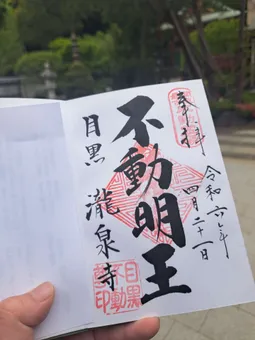 奉拝
令和六年
四月二十一日
不動明王
目黒 瀧泉寺
目黒
不動